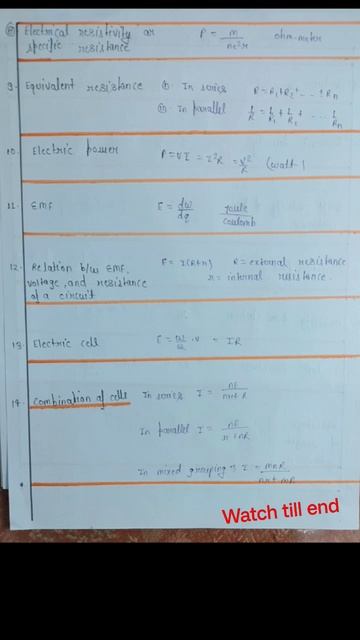 ⑧ Electrical resistivity or specific resistance
ρ = m/ne²τ
ohm-meter
9. Equivalent resistance
(i) In series
R = R₁ + R₂ + ... + Rn
(ii) In parallel
1/R = 1/R₁ + 1/R₂ + ... 1/Rn
10. Electric power
P = VI = I²R = V²/R (watt)
11. EMF
E = dw/dq
joule/coulomb
12. Relation b/w EMF,
voltage, and resistance
of a circuit
E = I(R+r)
R = external resistance
r = internal resistance.
13. Electric cell
= IR
14. Combination of cells
In series I = nE/nr+R
In parallel I = nE/r+nR
In mixed grouping I = mnE/nr+mR
Watch till end